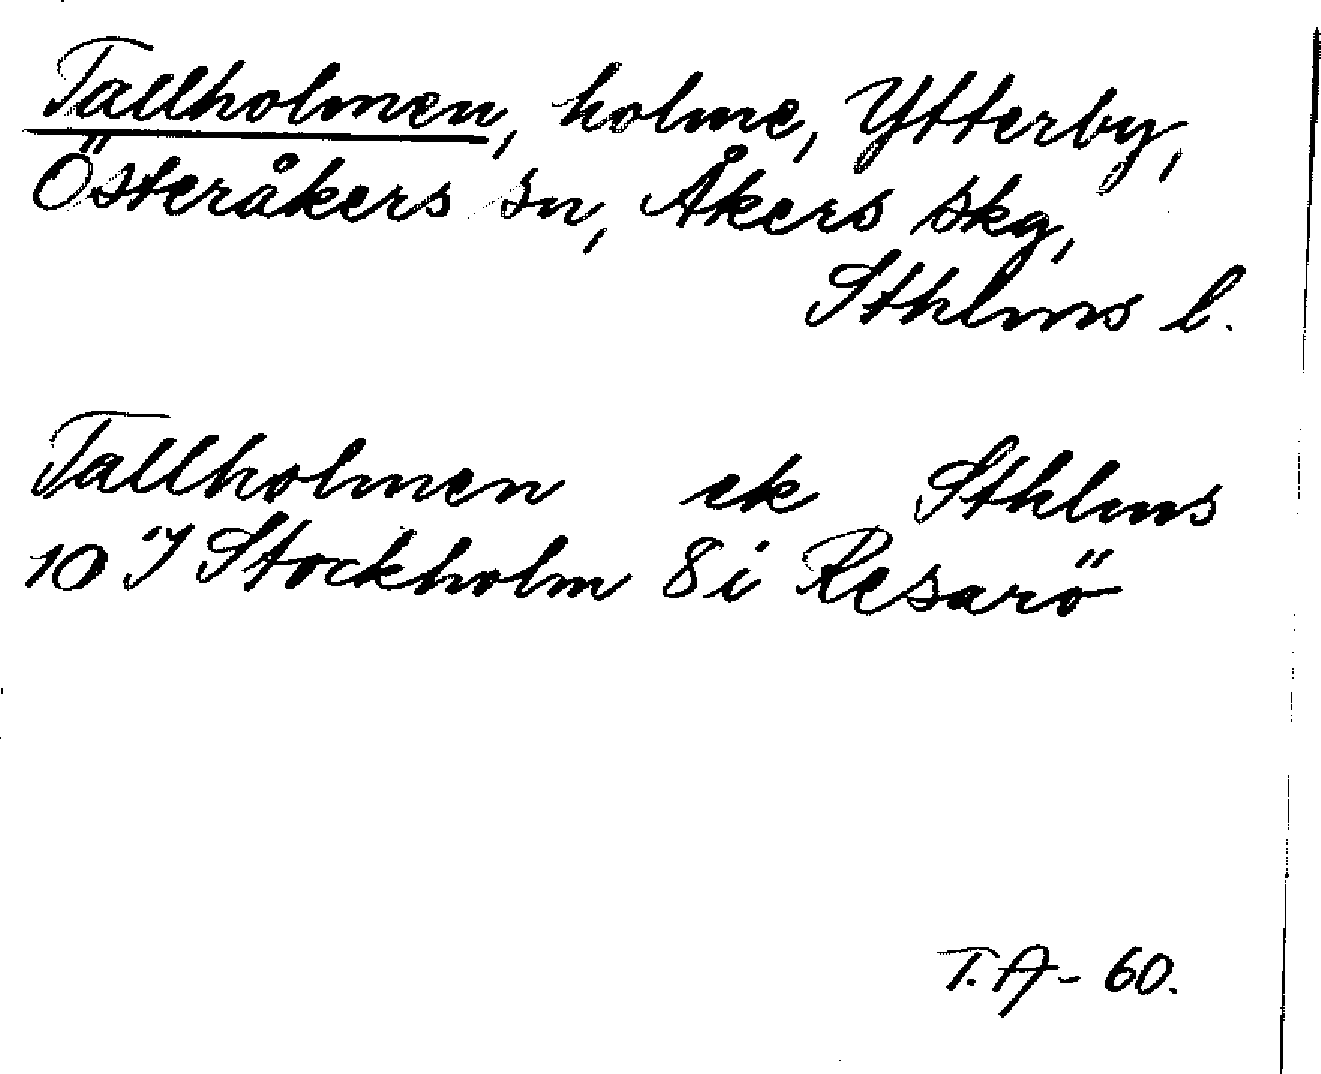 Tallholmen, holme, Ytterby,
Österåkers sn, Åkers skg,
Sthlms l.
Tallholmen ek Sthlms
10 I Stockholm 8i Resarö
T.A-60.